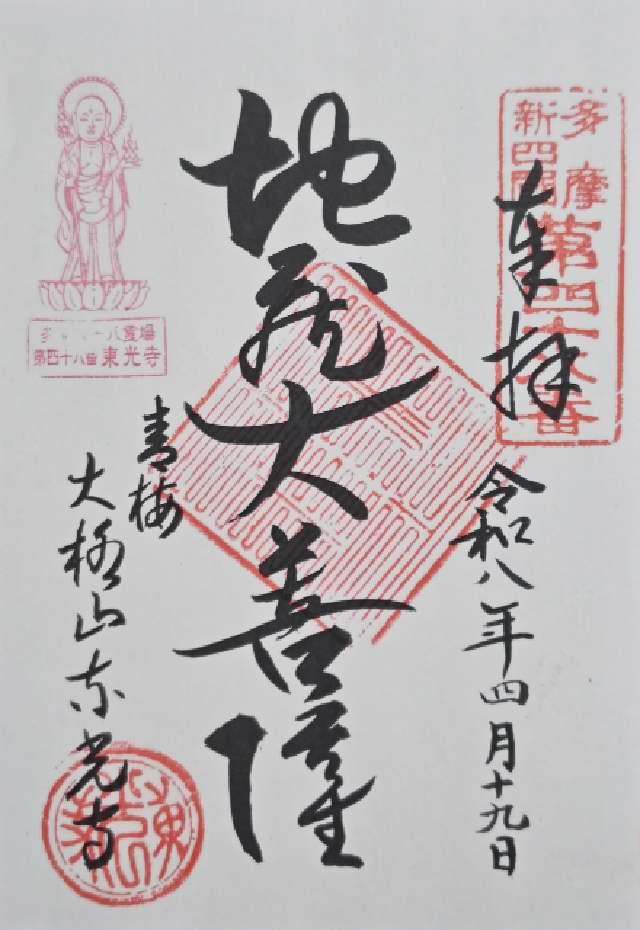 多摩
新四国
奉拝
令和八年四月十九日
地蔵大菩薩
青梅
大栁山東光寺
八霊場
第四十八番 東光寺